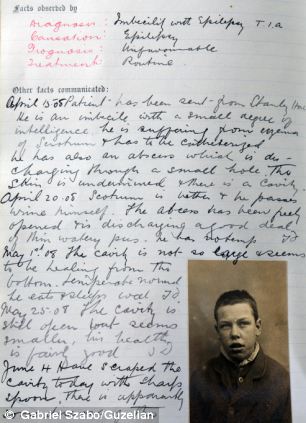 Facts observed by
Diagnosis: Imbecility with Epilepsy T.1.a
Causation: Epilepsy
Prognosis: Unfavourable
Treatment: Routine
Other facts communicated:
April 13 08 Patient has been sent from Chantry
He is an imbecile with a small degree of
intelligence. he is suffering from
of Scrotum & has to be catheterised
he has also an abscess which is dis-
charging through a small hole, the
skin is undermined & there is a cavity
April 20.08. Scotum is better & he passes
urine himself. The abcess has been freely
opened & is discharging a good deal
of thin watery pus. he has no temp
May 1st 08. The cavity is not so large & seems
to be healing from the
bottom. Temperature normal
he eats & sleeps well
May 25.08 The cavity is
still open but seems
smaller, his health
is fairly good
June 4 Have scraped the
cavity to day with sharp
spoon. There is apparently
© Gabriel Szabo/Guzelian